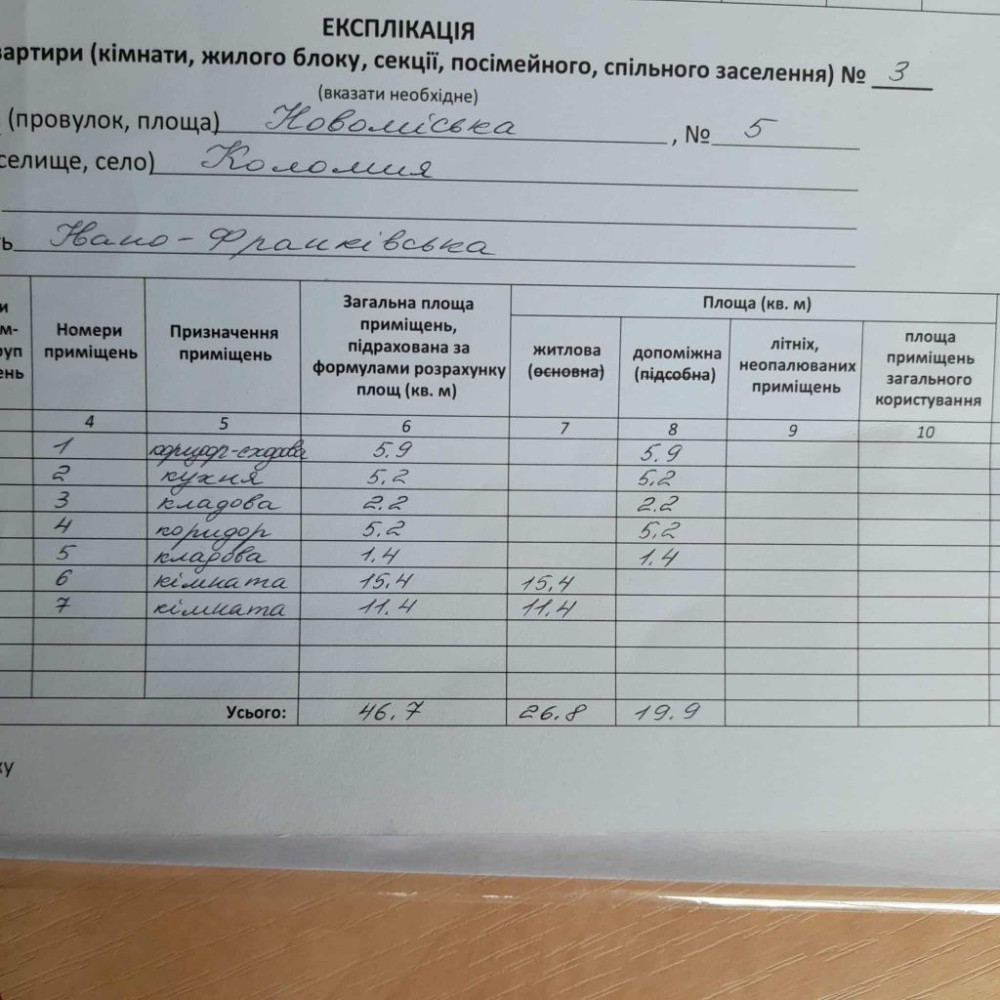 ЕКСПЛІКАЦІЯ
вартири (кімнати, жилого блоку, секції, посімейного, спільного заселення) № 3
(вказати необхідне)
(провулок, площа) Новоміська, № 5
селище, село) Коломия
ь Івано-Франківська
и м- руп ень | Номери приміщень | Призначення приміщень | Загальна площа приміщень, підрахована за формулами розрахунку площ (кв. м) | Площа (кв. м)
житлова (основна) | допоміжна (підсобна) | літніх, неопалюваних приміщень | площа приміщень загального користування
4 5 6 7 8 9 10
1 коридор-сходова 5.9 5.9
2 кухня 5,2 5,2
3 кладова 2.2 2.2
4 коридор 5,2 5,2
5 кладова 1.4 1.4
6 кімната 15,4 15,4
7 кімната 11.4 11.4
Усього: 46.7 26.8 19.9
ку